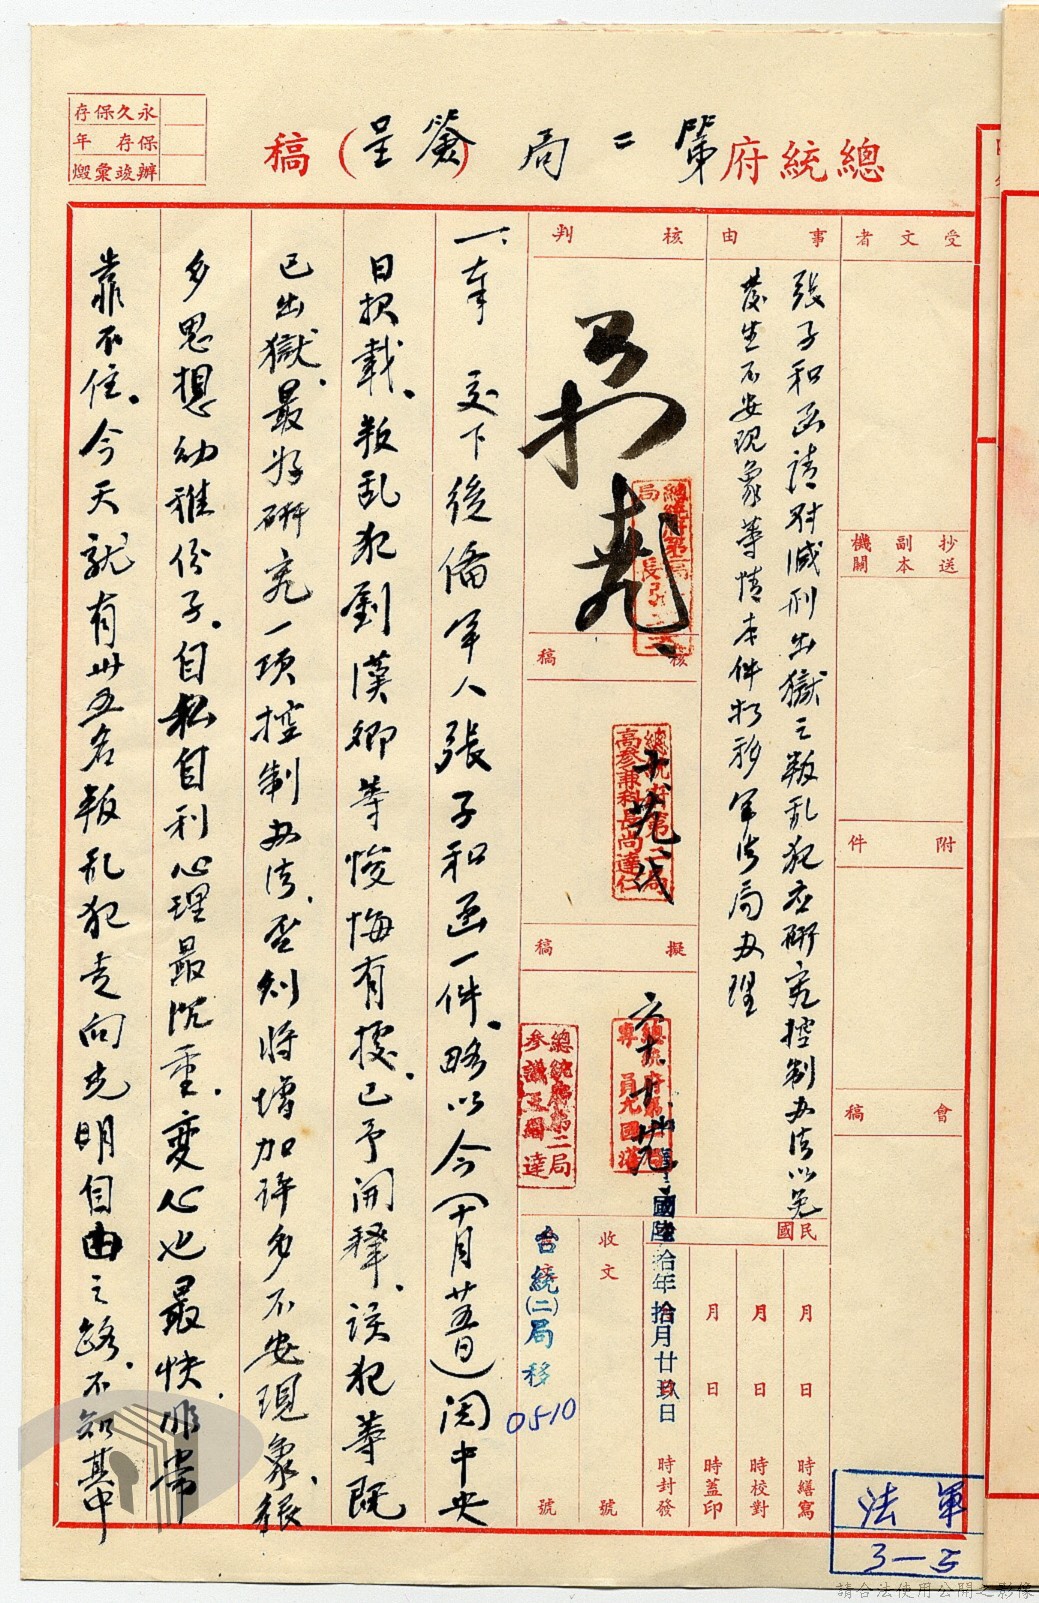 永久保存
保存 年
辦竣彙燬
總統府第二局(簽呈)稿
受文者
抄送副本機關
附件
會稿
事由
張子和函請對減刑出獄之叛乱犯应研究控制办法以免
發生不安現象等情本件拟移军法局办理
民國
月 日 時繕寫
月 日 時校對
月 日 時蓋印
中華民國陸拾年拾月廿玖日
時封發
核判
核稿
總統府第二局
高參兼科長尚達仁
擬稿
六十、十、
收文 號
台統(二)局移 0510 號
一、奉 交下後備军人張子和函一件。略以今(十月廿五日)閱中央
日报載。叛乱犯劉漢卿等悛悔有據。已予開釋。該犯等既
已出獄。最好研究一項控制办法。否则將增加许多不安現象。張
乡思想幼稚份子。自私自利心理最沉重。变心也最快。非常
靠不住。今天就有卅五名叛乱犯走向光明自由之路。不知其中
軍法
3—5
請合法使用公開之影像